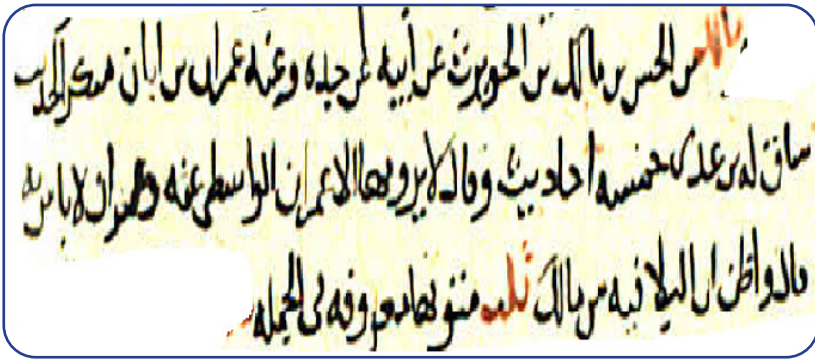 مالك بن الحسن بن مالك بن الحويرث عن أبيه عن جده وعنه عمران بن ابان منكر الحديث
ساق له بن عدى خمسه احاديث وقال لا يرويها الا عمران الواسطى عنه وعمران لا باس به
قال واظن ان البلا فيه من مالك قلت متونها معروفه فى الجمله